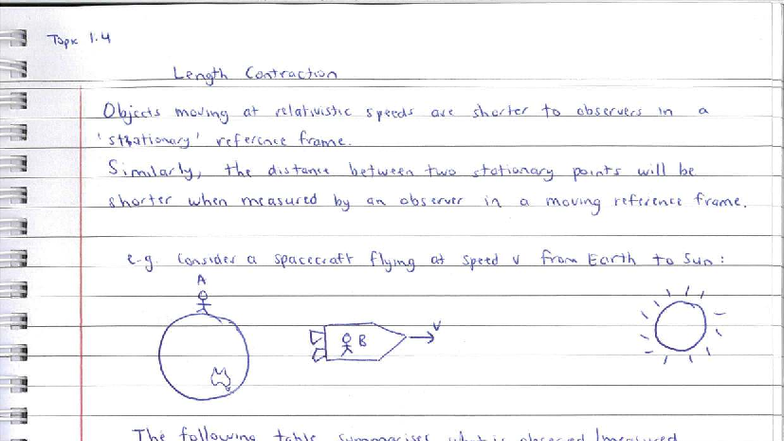 Topic 1.4
Length Contraction
Objects moving at relativistic speeds are shorter to observers in a
'stationary' reference frame.
Similarly, the distance between two stationary points will be
shorter when measured by an observer in a moving reference frame.
e.g. Consider a spacecraft flying at speed v from Earth to Sun:
A
B
v
The following table summarises what is observed/measured